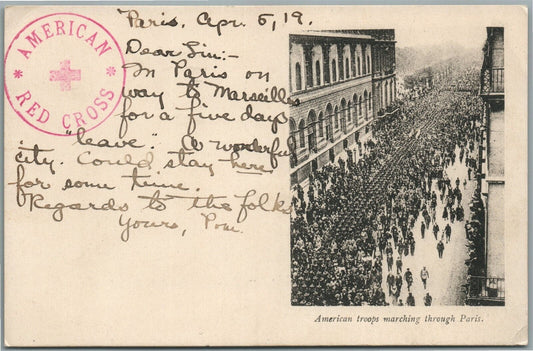 AMERICAN
RED CROSS
Paris, Apr. 6, 19.
Dear Sir:-
In Paris on
way to Marseilles
for a five days
"leave." A wonderful
city. Could stay here
for some time.
Regards to the folks
Yours,
American troops marching through Paris.